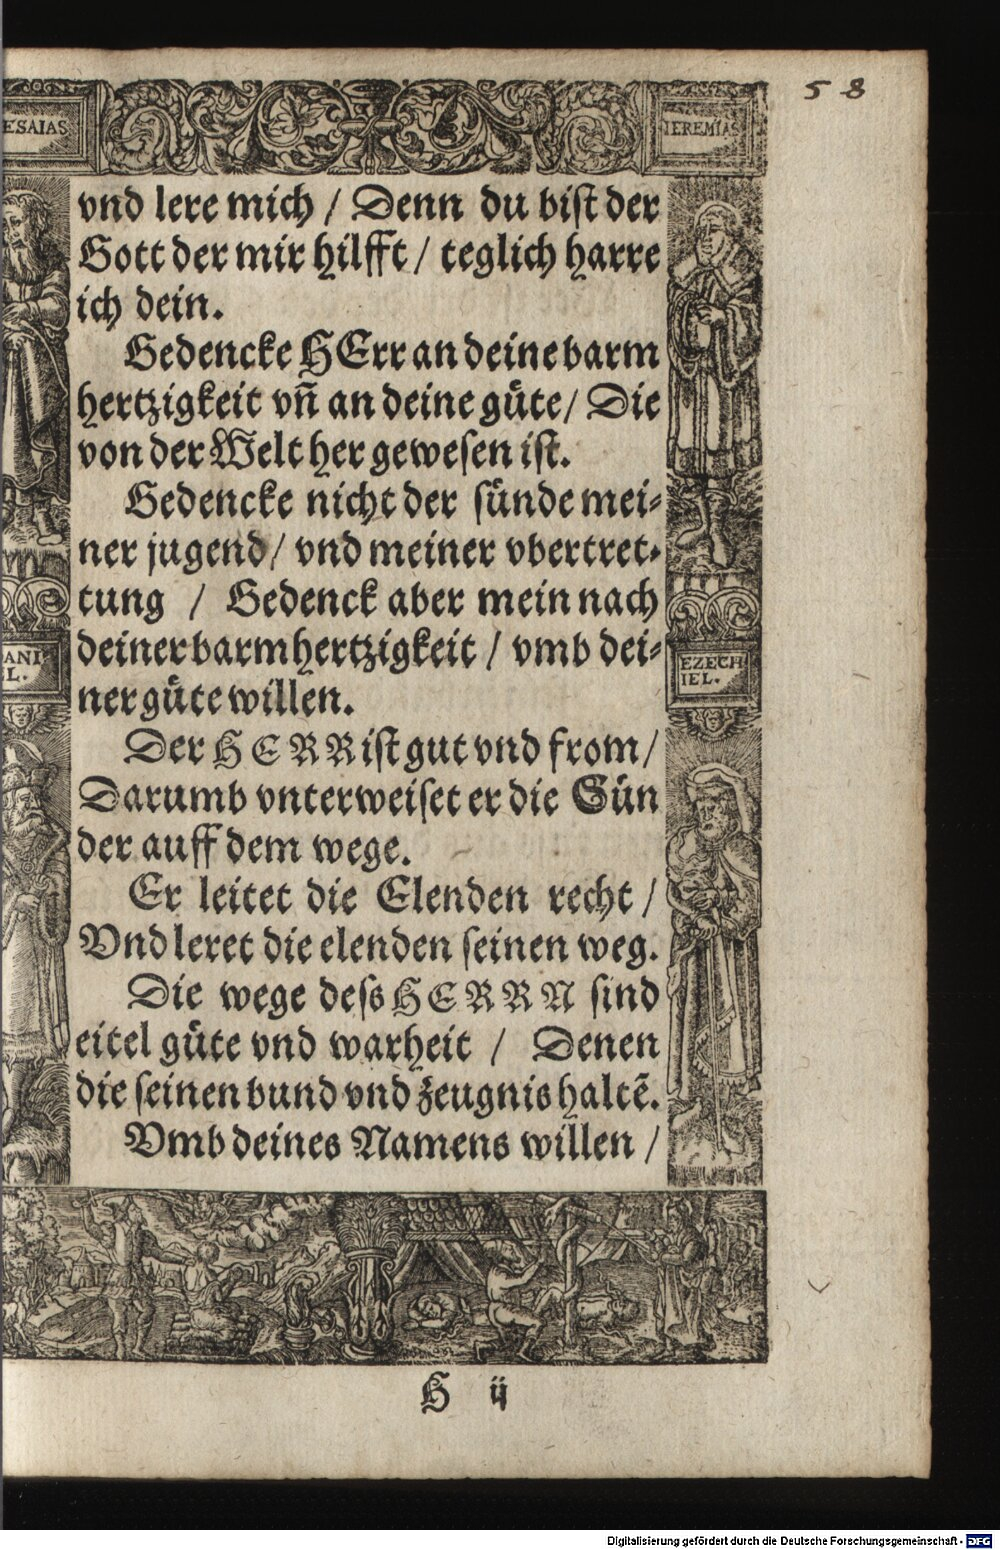 58
ESAIAS
IEREMIAS
vnd lere mich / Denn du bist der
Gott der mir hilfft / teglich harre
ich dein.
Gedencke HErr an deine barm
hertzigkeit vn̄ an deine guͤte / Die
von der Welt her gewesen ist.
Gedencke nicht der suͤnde mei⸗
ner jugend / vnd meiner vbertret⸗
tung / Gedenck aber mein nach
deiner barmhertzigkeit / vmb dei⸗
ner guͤte willen.
ANI
L.
EZECH
IEL.
Der HERR ist gut vnd from /
Darumb vnterweiset er die Sün
der auff dem wege.
Er leitet die Elenden recht /
Vnd leret die elenden seinen weg.
Die wege dess HERRN sind
eitel guͤte vnd warheit / Denen
die seinen bund vnd zeugnis haltē.
Vmb deines Namens willen /
H ij
Digitalisierung gefördert durch die Deutsche Forschungsgemeinschaft - DFG